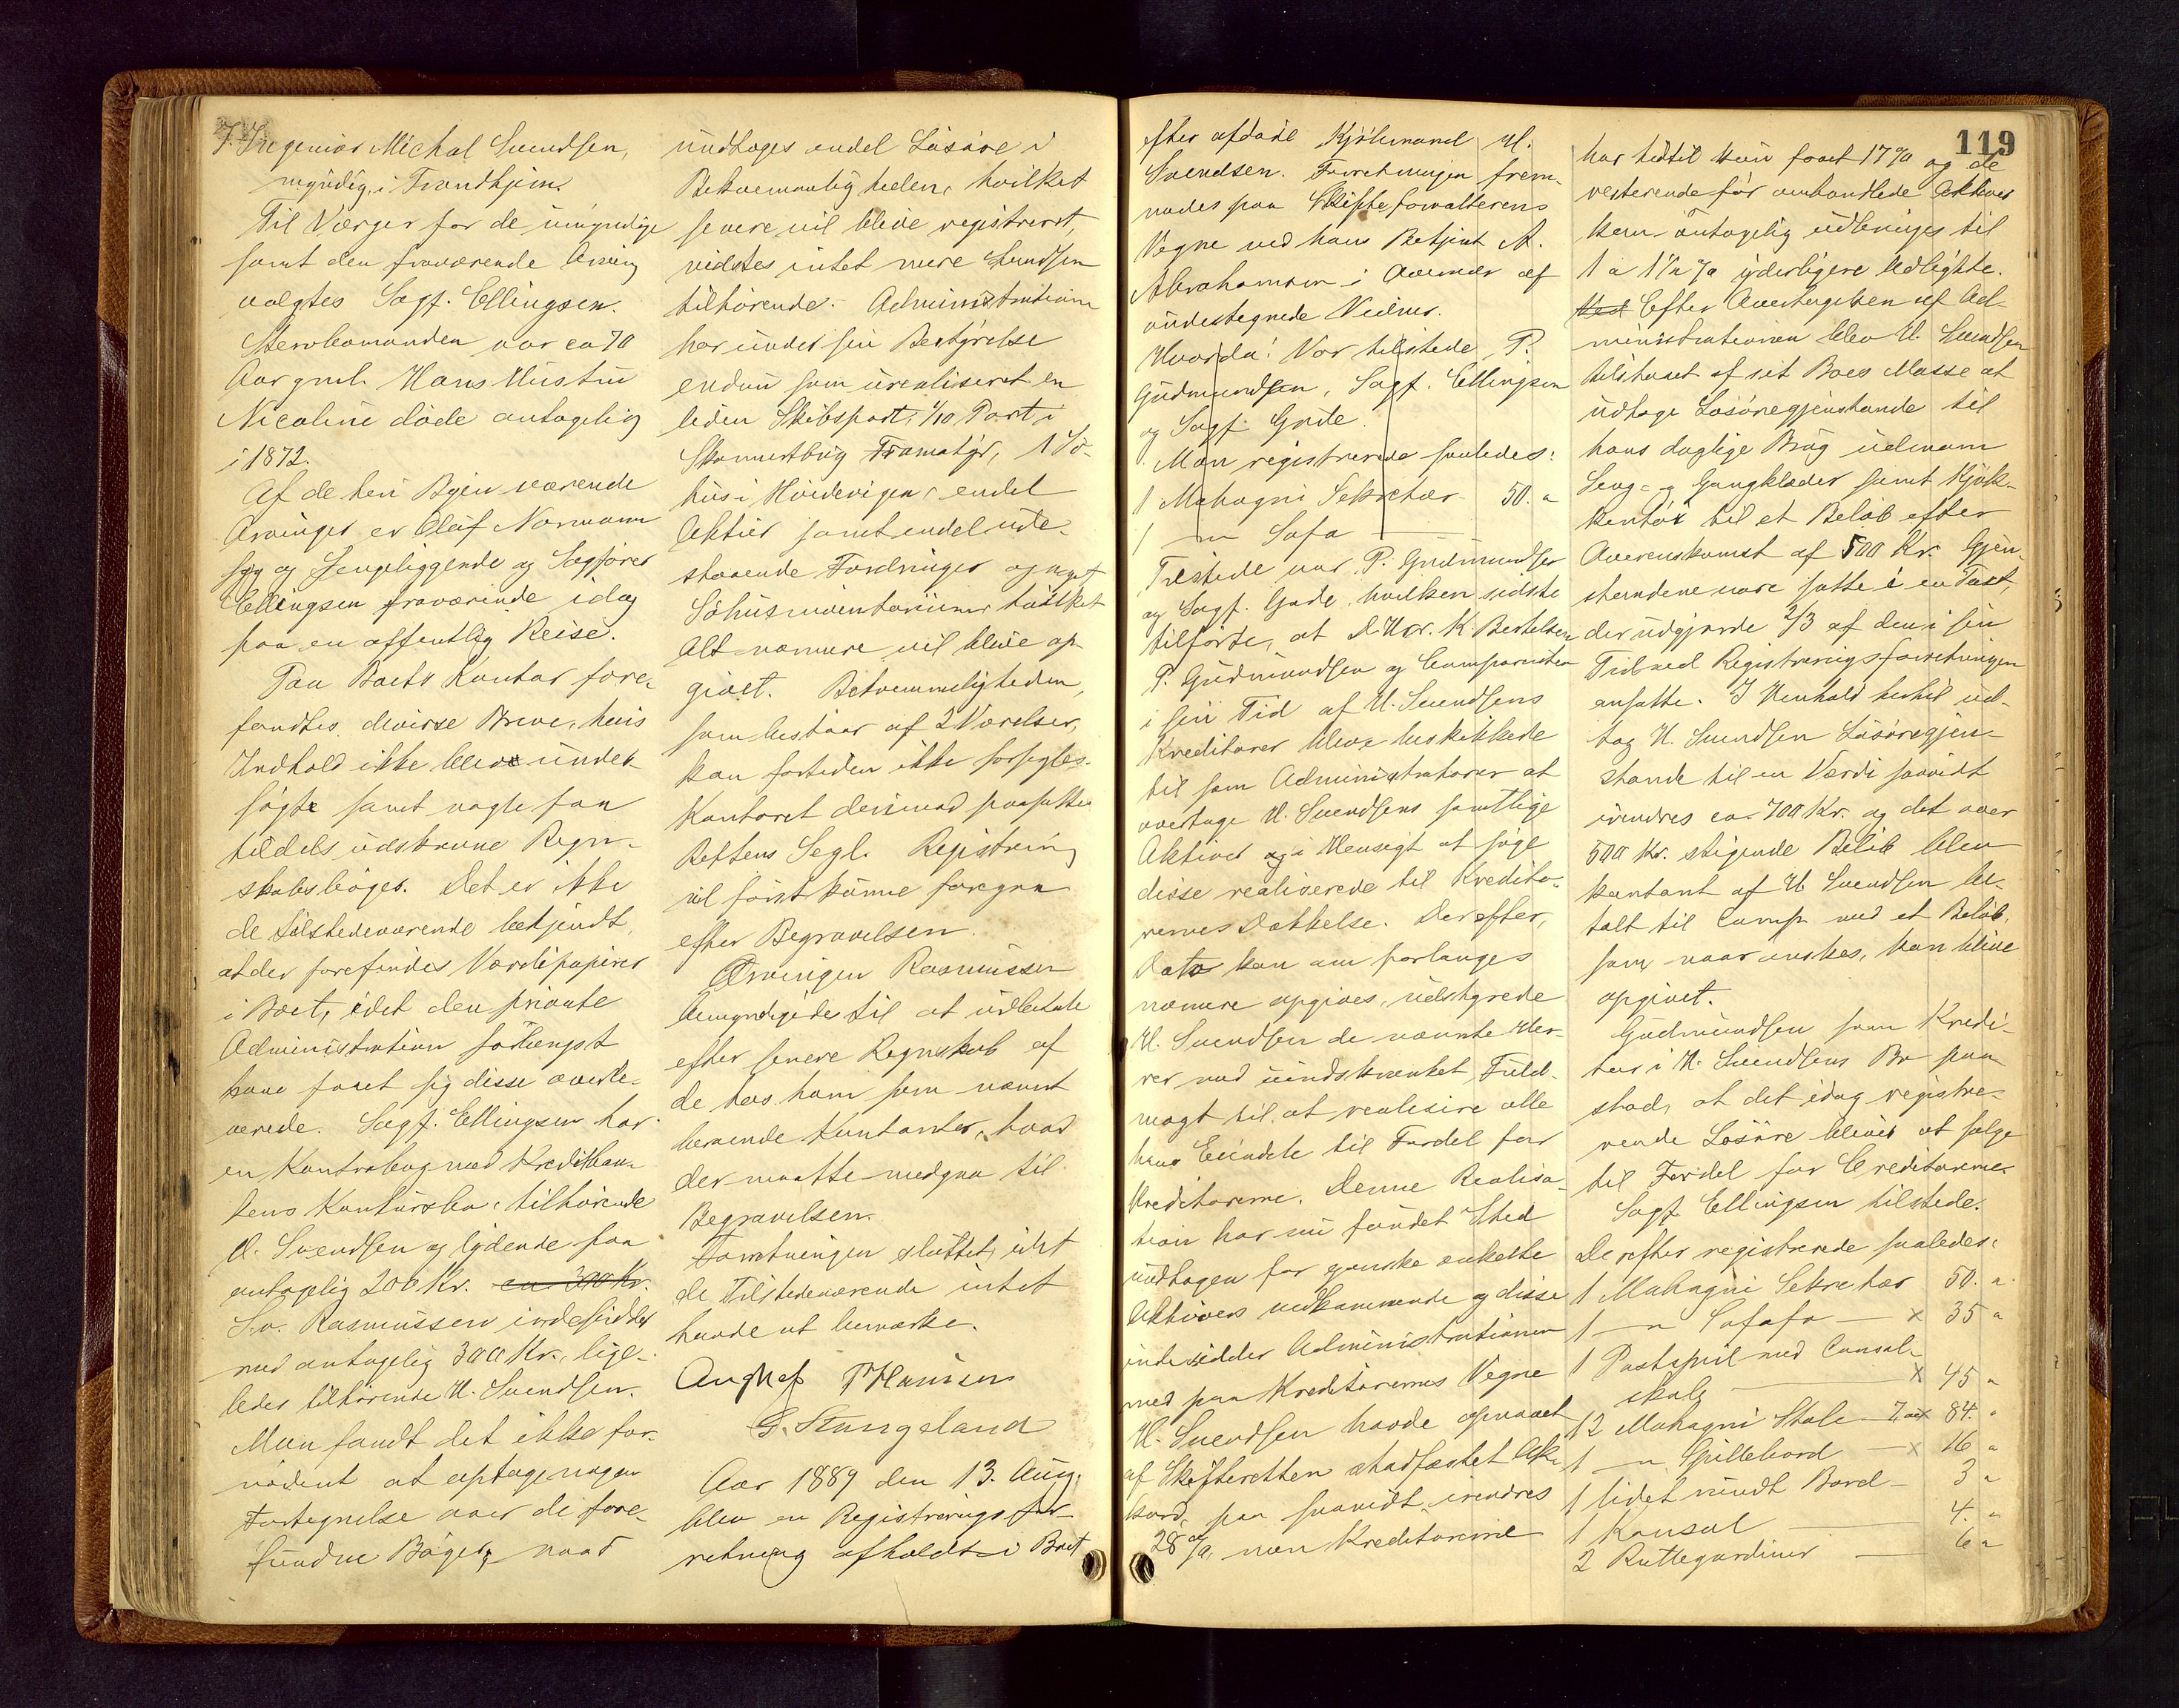 7. Ingeniør Michal Svendsen,
myndig, i Trondhjem.
Til Værger for de umyndige
samt den fraværende Arving
valgtes Sagf. Ellingsen.
Stervbomanden var ca 70
Aar gml. Hans Hustru
Nicoline døde antagelig
i 1872.
Af de heri Byen værende
Arvinger er Oluf Normann
syg og Sengeliggende og Sagfører
Ellingsen fraværende idag
paa en offentlig Reise.
Paa Boets Kontor fore-
fandtes diverse Breve, hvis
Indhold ikke bleve under-
søgte samt nogle faa
tildels udskrevne Regn-
skabsbøger. Det er ikke
de tilstedeværende bekjendt,
at der forefindes Værdipapirer
i Boet, idet den private
Administration forlængst
have faaet sig disse overle-
verede. Sagf. Ellingsen har
en Kontrabog med Kreditban-
kens Konkursbo, tilhørende
H. Svendsen og lydende paa
antagelig 200 Kr. ca 300 Kr.
S.v. Rasmussen indesidder
med antagelig 300 Kr., lige-
ledes tilhørende H. Svendsen.
Man fandt det ikke for-
nødent at optage nogen
Fortegnelse over de fore-
fundne Bøger, naar
undtages endel Løsøre i
Bekvemmeligheden, hvilket
senere vil blive registreret,
vidstes intet mere Svendsen
tilhørende. Administrationen
har under sin Bestyrelse
endnu som urealiseret en
liden Skibspart, 1/10 Part i
Skonnertbrig Framatys, 1 Sø-
hus i Hvidevigen, endel
Aktier samt endel ude-
staaende Fordringer og noget
Søhusinventarium hvilket
Alt nærmere vil blive op-
givet. Bekvemmeligheden,
som bestaar af 2 Værelser,
kan fortiden ikke forsegles.
Kontoret derimod paasattes
Rettens Segl. Registrering
vil først kunne foregaa
efter Begravelsen.
Arvingen Rasmussen
bemyndigedes til at udbetale
efter senere Regnskab af
de hos ham som nævnt
beroende Kontanter, hvad
der maatte medgaa til
Begravelsen.
Forretningen sluttet, idet
de Tilstedeværende intet
havde at bemærke.
P Hansen
G. Stangeland
Aar 1889 den 13. Aug.
blev en Registreringsfor-
retning afholdt i Boet
119
efter afdøde Kjøbmand H.
Svendsen. Forretningen frem-
mødes paa Skifteforvalterens
Vegne ved hans Betjent A.
Abrahamsen i Overvær af
undertegnede Vidner.
Hvorda! Var tilstede P.
Gudmundsen, Sagf. Ellingsen
og Sagf. Grude.
Man registrerede saaledes:
1 Mahogni Sekretær 50. "
1 — " Sofa —
Tilstede var P. Gudmundsen
og Sagf. Gade, hvilken sidste
tilførte, at D'Hrr. K. Bertelsen
P. Gudmundsen og Comparenten
i sin Tid af H. Svendsens
Kreditorer bleve beskikkede
til som Administratorer at
overtage H. Svendsens samtlige
Aktiver og i Hensigt at søge
disse realiserede til Kredito-
rernes Dækkelse. Derefter,
Dato kan om forlanges
nærmere opgives, udstyrede
H. Svendsen de nævnte Her-
rer med uindskrænket Fuld-
magt til at realisere alle
hans Eiendele til Fordel for
Kreditorerne. Denne Realisa-
tion har nu fundet Sted
undtagen for ganske enkelte
Aktivers vedkommende og disse
indesidder Administrationen
med paa Kreditorernes Vegne
H. Svendsen havde opnaaet
af Skifteretten stadfæstet Ak-
kord, paa saavidt erindres
28 %, men Kreditorerne
har hidtil kun faaet 17 % og de
resterende før omhandlede Aktiver
kan antagelig udbringes til
1 a 1½ % yderligere Udlighte.
Ved Efter Overtagelsen af Ad-
ministrationen blev H. Svendsen
tilstaaet af sit Boes Masse at
udtage Løsøregjenstande til
hans daglige Brug udenom
Seng- og Gangklæder samt Kjøk-
kentøi til et Beløb efter
Overenskomst af 500 Kr. Gjen-
standene vare satte i en Taxt,
der udgjorde 2/3 af den i sin
Tid ved Registreringsforretningen
ansatte. I Henhold hertil ud-
tog H. Svendsen Løsøregjen-
stande til en Værdi saavidt
erindres ca. 700 Kr. og det over
500 Kr. stigende Beløb blev
kontant af H. Svendsen be-
talt til Comp. med et Beløb,
som naar ønskes, kan blive
opgivet.
Gudmundsen som Kredi-
tor i H. Svendsens Bo paa-
stod, at det idag registre-
rende Løsøre bliver at sælge
til Fordel for Creditorerne.
Sagf Ellingsen tilstede.
Derefter registrerede saaledes:
1 Mahogni Sekretær 50. "
1 — " Sofafa — x 35 "
1 Postspeil med Consol-
skab — x 45 "
12 Mahogni Stole 7. x 84. "
1 — " Spillebord — x 16 "
1 lidet rundt Bord — 3 "
1 Konsol — 4. "
2 Rullegardiner — 6 "